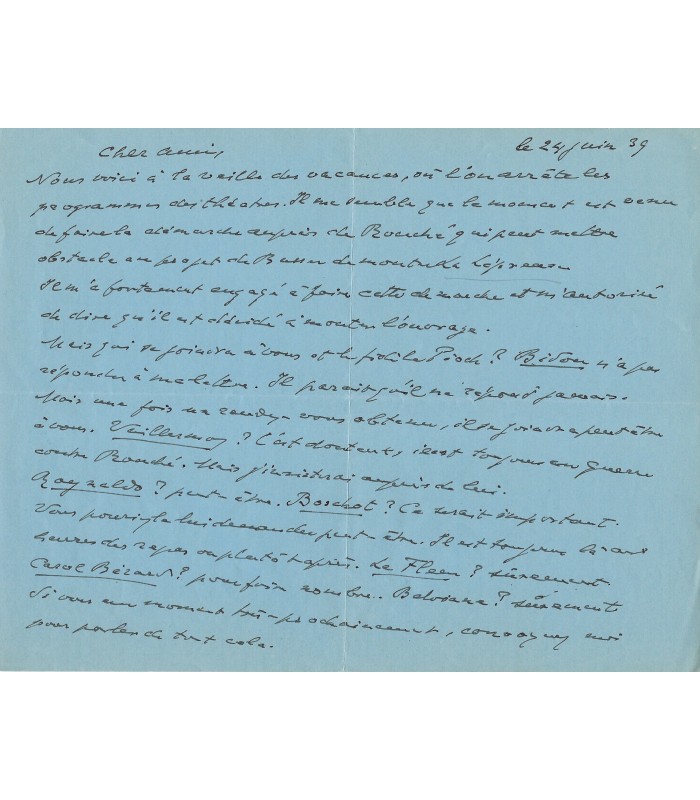 le 24 juin 39
Cher ami,
Nous voici à la veille des vacances, où l'on arrête les
programmes des théâtres. Il me semble que le moment est venu
de faire la démarche auprès de Rouché qui peut mettre
obstacle au projet de Busser de monter La Lépreuse
Il m'a fortement engagé à faire cette démarche et m'autorise
de dire qu'il est décidé à monter l'ouvrage.
Mais qui se joindra à vous et le fidèle Pioch ? Bidou n'a pas
répondu à ma lettre. Il paraît qu'il ne répond jamais.
Mais une fois un rendez-vous obtenu, il se joindra peut être
à vous. Vuillermoz ? C'est douteux, il est toujours en guerre
contre Rouché. Mais j'insisterai auprès de lui.
Reynaldo ? peut être. Boschot ? Ce serait important.
Vous pourriez le lui demander peut-être. Il est toujours là aux
heures des repas ou plutôt après. Le Flem ? sûrement.
Carol Bérard ? pour faire nombre.. Belviane ? sûrement
Si vous un moment très prochainement, convoquez moi
pour parler de tout cela.